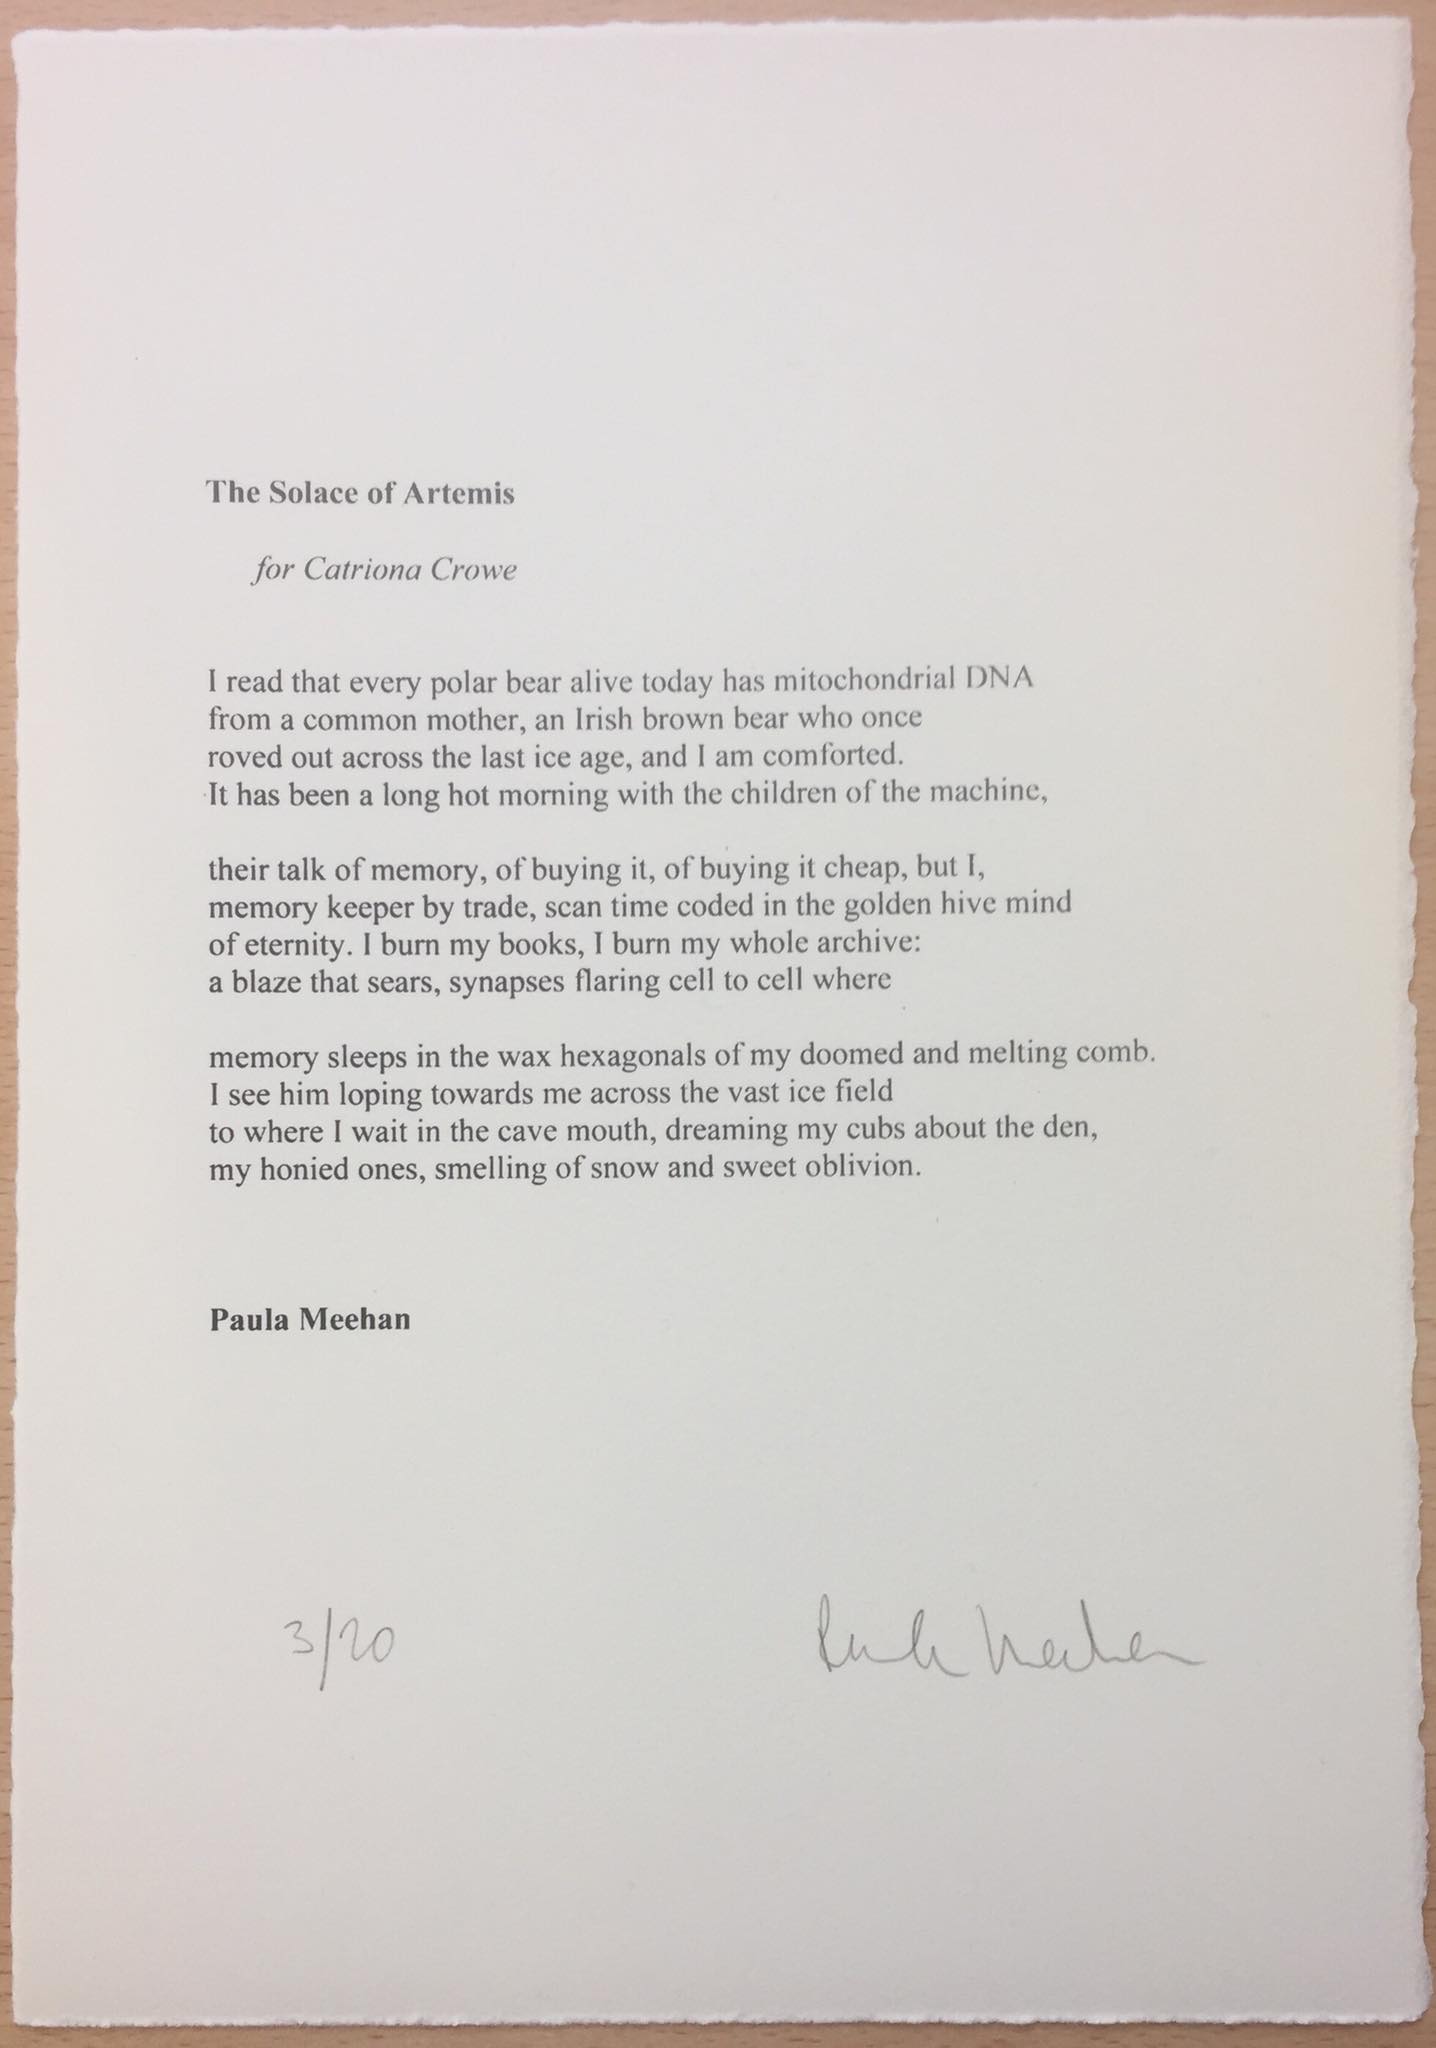 The Solace of Artemis
for Catriona Crowe
I read that every polar bear alive today has mitochondrial DNA
from a common mother, an Irish brown bear who once
roved out across the last ice age, and I am comforted.
It has been a long hot morning with the children of the machine,
their talk of memory, of buying it, of buying it cheap, but I,
memory keeper by trade, scan time coded in the golden hive mind
of eternity. I burn my books, I burn my whole archive:
a blaze that sears, synapses flaring cell to cell where
memory sleeps in the wax hexagonals of my doomed and melting comb.
I see him loping towards me across the vast ice field
to where I wait in the cave mouth, dreaming my cubs about the den,
my honied ones, smelling of snow and sweet oblivion.
Paula Meehan
3/20 Paula Meehan